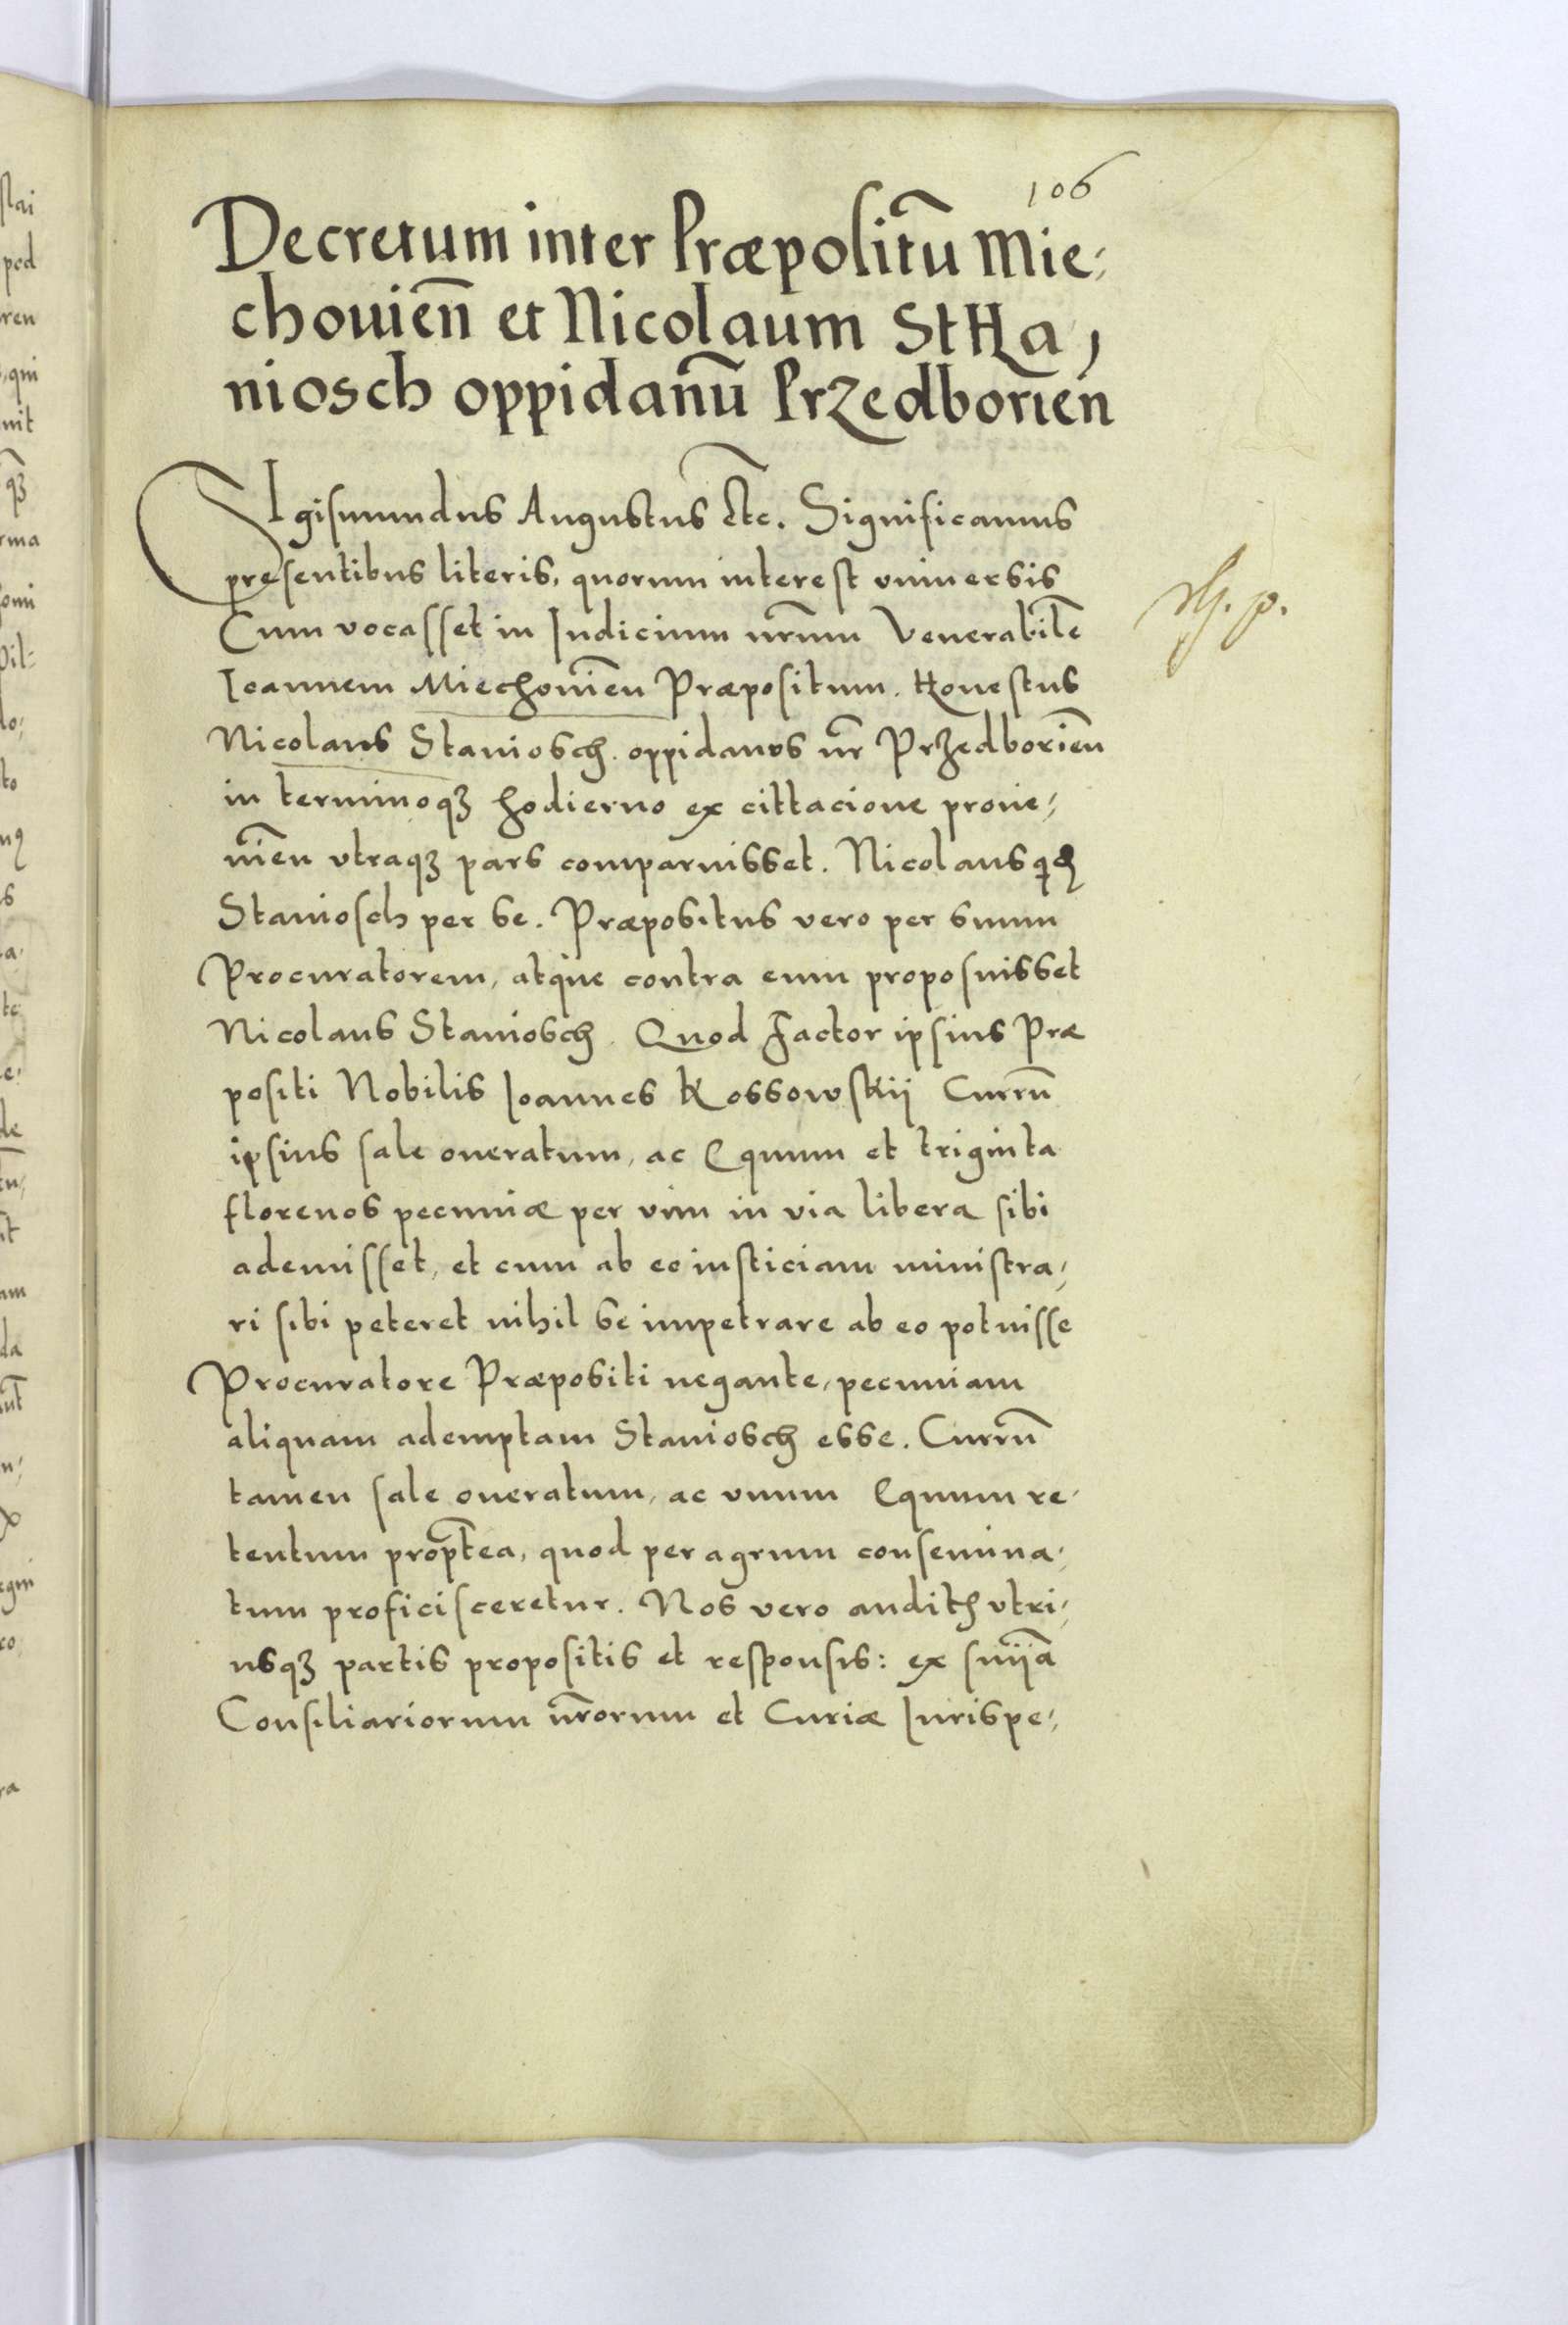 106
Decretum inter Præpositū Mie,
chouien̄ et Nicolaum StHa,
niosch oppidanū Przedborien̄
SIgismundus Augustus Etc. Significamus
presentibus literis, quorum interest vniuersis
Cum vocasset in Iudicium nr̄um Venerabilē
Ioannem Miechouien̄ Præpositum. Honestus
Nicolaus Staniosch oppidanus nr̄ Przedborien̄
in terminoqȝ hodierno ex cittacione proue,
nien̄ vtraqȝ pars comparuisset. Nicolaus
Staniosch per se. Præpositus vero per suum
Procuratorem, atque contra eum proposuisset
Nicolaus Staniosch. Quod Factor ipsius Præ
positi Nobilis Ioannes Kossowskij Currū
ipsius sale oneratum, ac Equum et triginta
florenos pecuniæ per vim in via libera sibi
ademisset, et cum ab eo iusticiam ministra,
ri sibi peteret nihil se impetrare ab eo potuisse
Procuratore Præpositi negante, pecuniam
aliquam ademptam Staniosch esse. Currū
tamen sale oneratum, ac vnum Equum re,
tentum propt̄ea, quod per agrum consemina,
tum proficisceretur. Nos vero auditis vtri,
usqȝ partis propositis et responsis: ex snīja
Consiliariorum nr̄orum et Curiæ Iurispe,